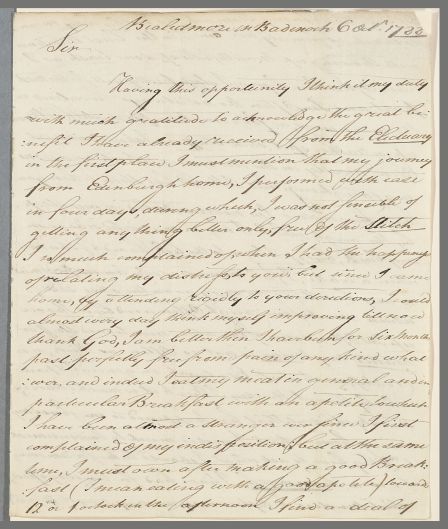 Bealidmore in Badenoch 6 Octr. 1788
Sir
Having this opportunity I think it my duty
with much gratitude to acknowledge the great be-
:nefit I have already received from the Electuary
in the first place I must mention that my journey
from Edinburgh home, I performed with ease
in four days, during which, I was not sensible of
getting any thing better only, free of the Stitch
I so much complained of when I had the happyness
of relating my distress to you; but since I came
home, by attending rigidly to your directions, I could
almost every day think myself improving till now
thank God, I am better then I have been for six Months
past, perfectly free from pain of any kind what
:ever, and indeed I eat my meat in general and in
particular Breakfast with an apetite to which
I have been almost a stranger ever since I first
complained of my indisposition; but at the same
time, I must own after making a good Break-
:fast (I mean eating with a good apetite) towards
12 or 1 oclock in the afternoon I find a deal of